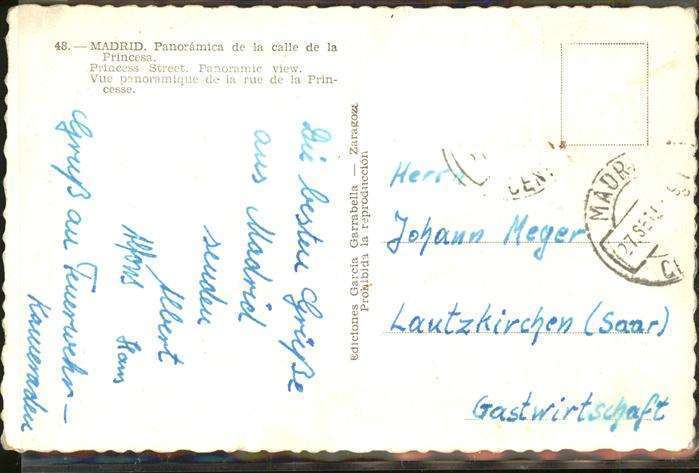 48. — MADRID. Panorámica de la calle de la
Princesa.
Princess Street. Panoramic view.
Vue panoramique de la rue de la Prin-
cesse.
Die besten Grüße
aus Madrid
senden
Albert
Alfons Hans
Gruß an Feuerwehr-
Kameraden
Ediciones García Garrabella — Zaragoza
Prohibida la reproducción
Herrn
Johann Meyer
Lautzkirchen (Saar)
Gastwirtschaft
CEN
MADR
27.SEP